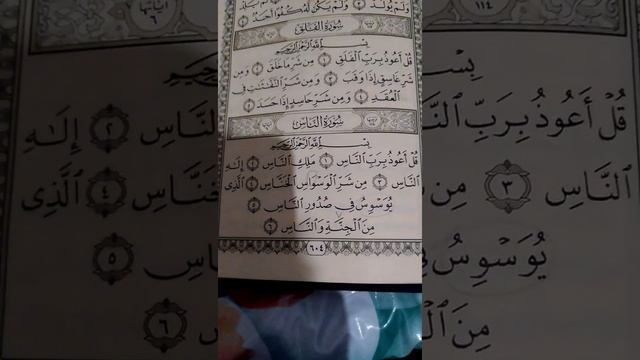 وَلَمْ يُولَدْ ۝٣ وَلَمْ يَكُن لَّهُۥ كُفُوًا أَحَدٌۢ ۝٤
سُورَةُ الفَلَقِ
بِسْمِ ٱللَّهِ ٱلرَّحْمَٰنِ ٱلرَّحِيمِ
قُلْ أَعُوذُ بِرَبِّ ٱلْفَلَقِ ۝١ مِن شَرِّ مَا خَلَقَ ۝٢ وَمِن
شَرِّ غَاسِقٍ إِذَا وَقَبَ ۝٣ وَمِن شَرِّ ٱلنَّفَّٰثَٰتِ فِى
ٱلْعُقَدِ ۝٤ وَمِن شَرِّ حَاسِدٍ إِذَا حَسَدَ ۝٥
سُورَةُ النَّاسِ
بِسْمِ ٱللَّهِ ٱلرَّحْمَٰنِ ٱلرَّحِيمِ
قُلْ أَعُوذُ بِرَبِّ ٱلنَّاسِ ۝١ مَلِكِ ٱلنَّاسِ ۝٢ إِلَٰهِ
ٱلنَّاسِ ۝٣ مِن شَرِّ ٱلْوَسْوَاسِ ٱلْخَنَّاسِ ۝٤ ٱلَّذِى
يُوَسْوِسُ فِى صُدُورِ ٱلنَّاسِ ۝٥
مِنَ ٱلْجِنَّةِ وَٱلنَّاسِ ۝٦
٦٠٤